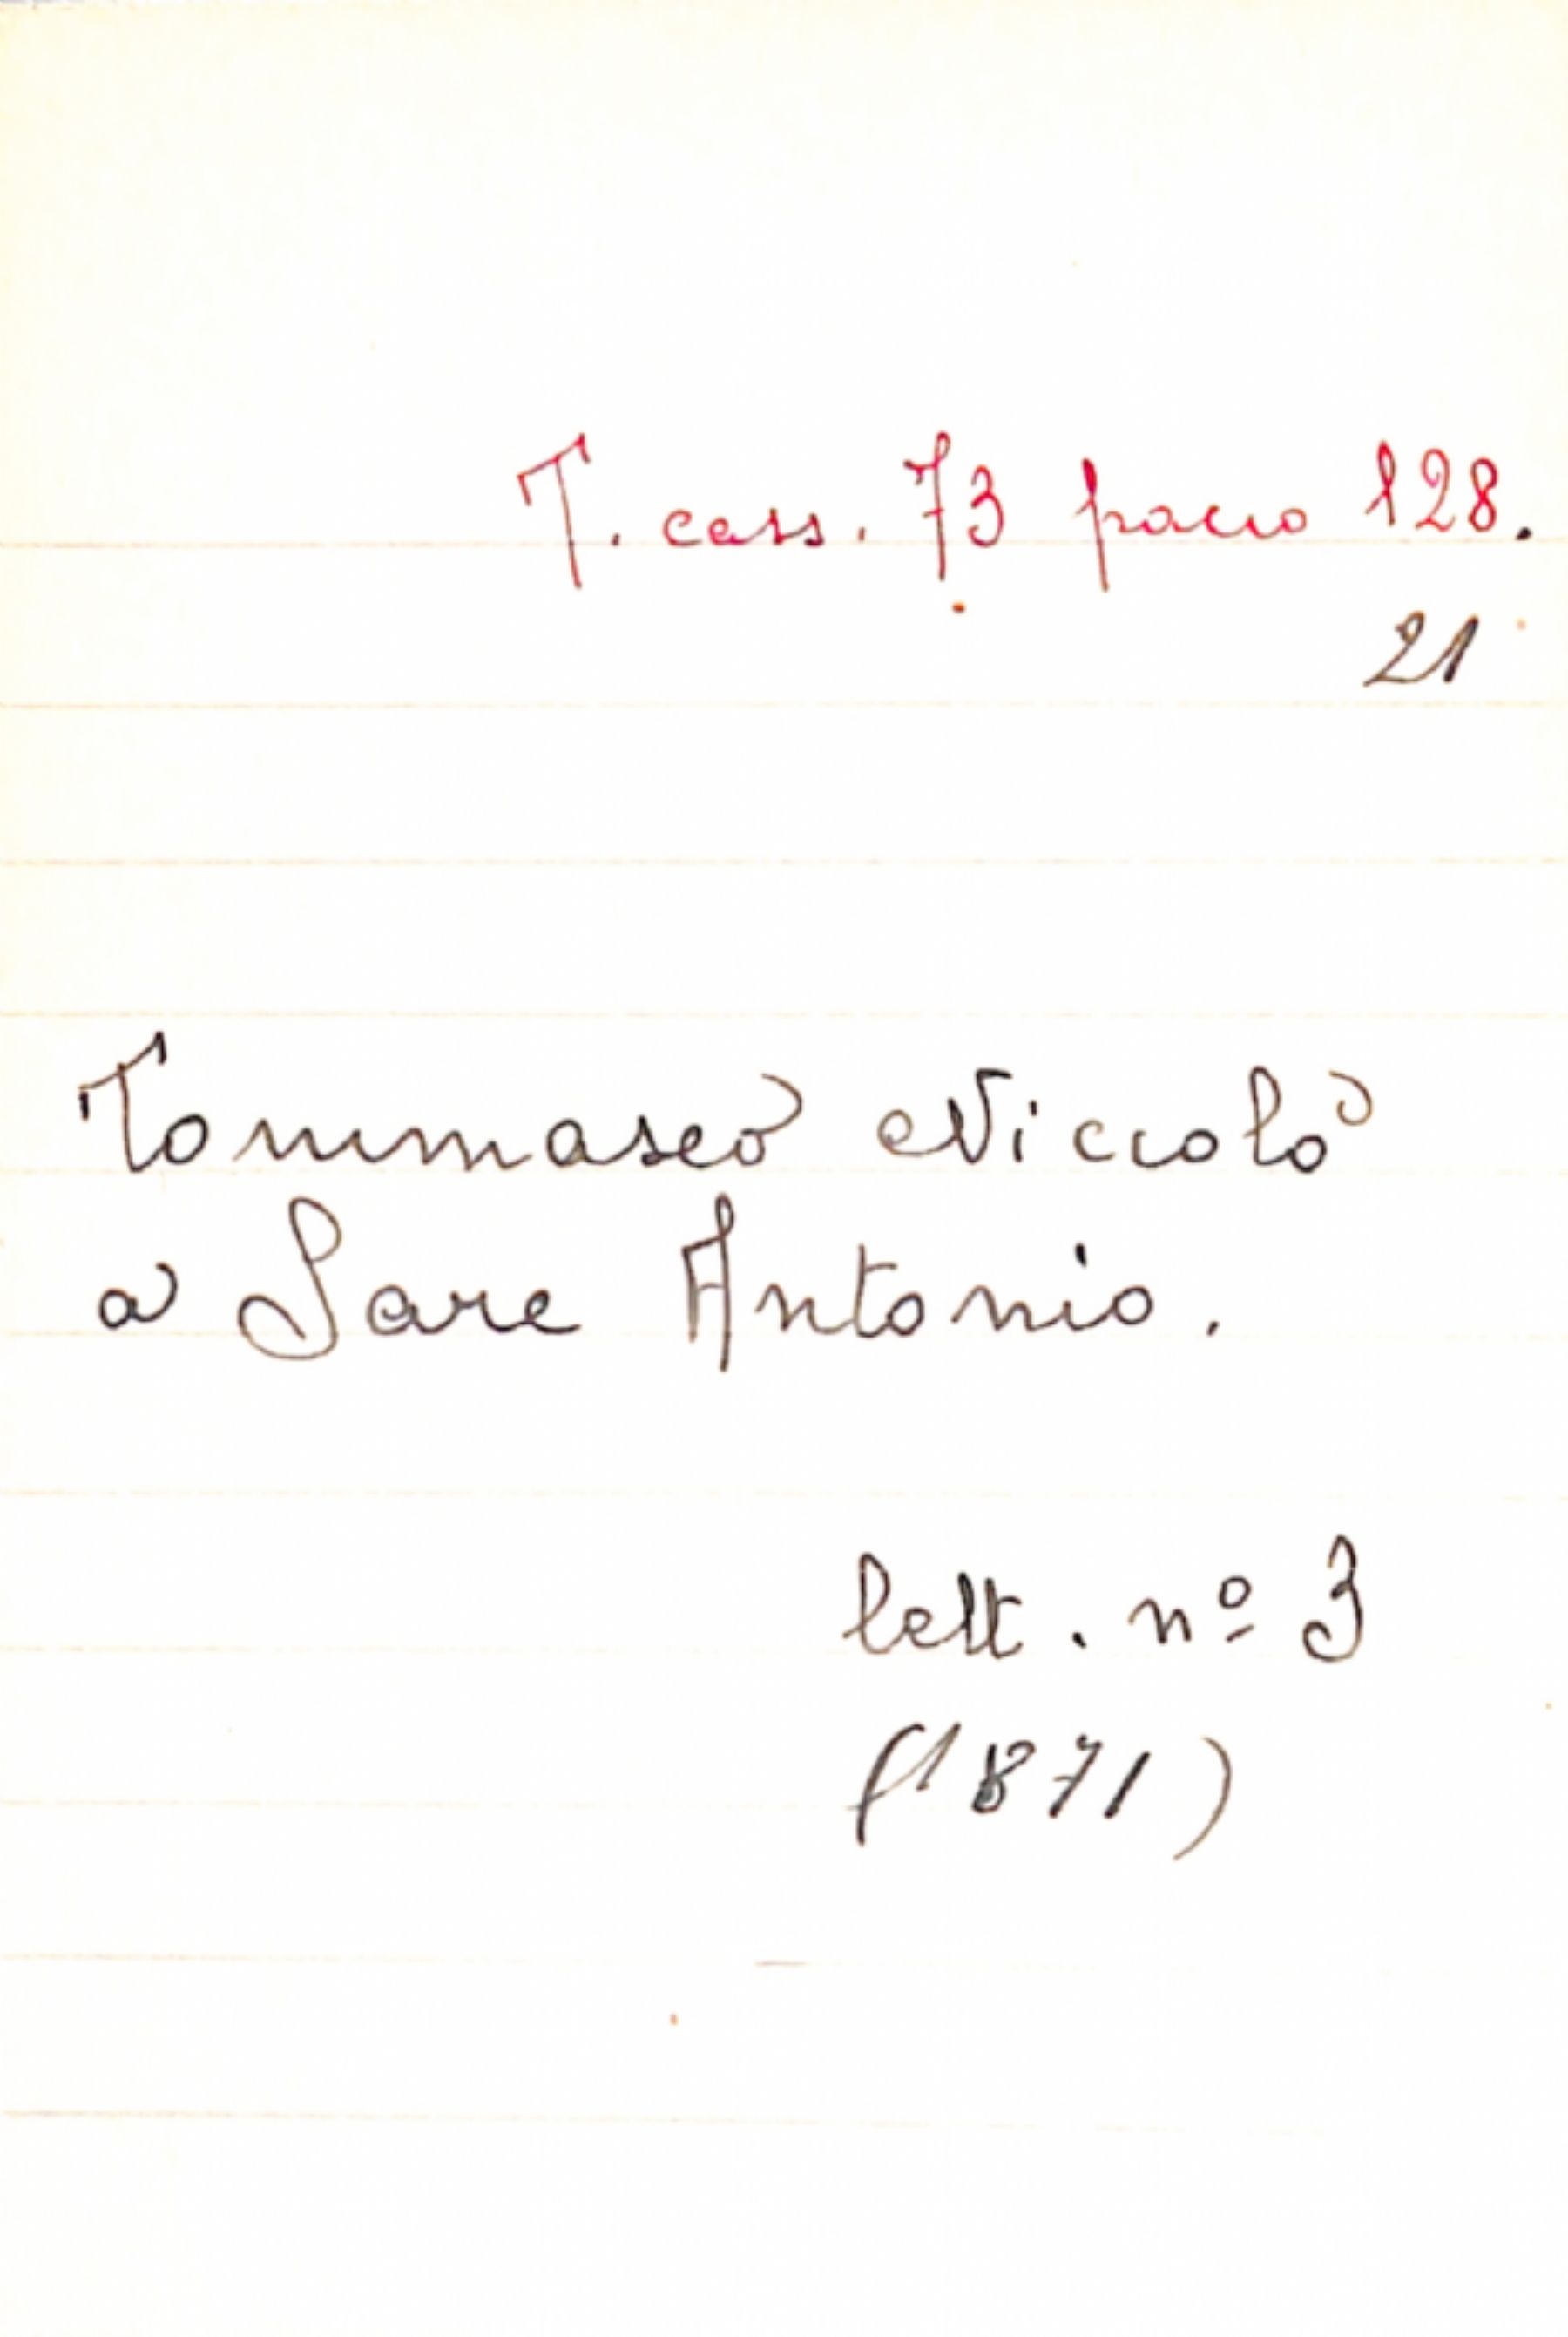 T. cass. 73 pacco 128.
21
Tommaseo Niccolò
a Sare Antonio.
lett. nº 3
(1871)